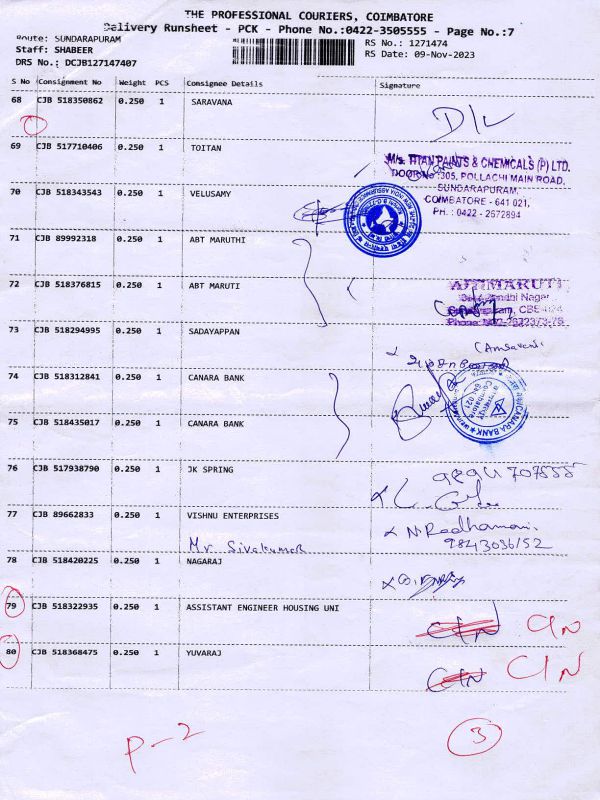 THE PROFESSIONAL COURIERS, COIMBATORE
Delivery Runsheet - PCK - Phone No.:0422-3505555 - Page No.:7
Route: SUNDARAPURAM
RS No.: 1271474
Staff: SHABEER
RS Date: 09-Nov-2023
DRS No.: DCJB127147407
S No Consignment No Weight PCS Consignee Details Signature
68 CJB 518350862 0.250 1 SARAVANA D/L
69 CJB 517710406 0.250 1 TOITAN
M/s. TITAN PAINTS & CHEMICALS (P) LTD.
DOOR NO 305, POLLACHI MAIN ROAD,
SUNDARAPURAM,
COIMBATORE - 641 021,
PH. : 0422 - 2672894
70 CJB 518343543 0.250 1 VELUSAMY
71 CJB 89992318 0.250 1 ABT MARUTHI
72 CJB 518376815 0.250 1 ABT MARUTI
ABT MARUTI
73 CJB 518294995 0.250 1 SADAYAPPAN
74 CJB 518312841 0.250 1 CANARA BANK
CANARA BANK
75 CJB 518435017 0.250 1 CANARA BANK
76 CJB 517938790 0.250 1 JK SPRING
77 CJB 89662833 0.250 1 VISHNU ENTERPRISES
N. Radhamani
Mr Sivakumar
78 CJB 518420225 0.250 1 NAGARAJ
79 CJB 518322935 0.250 1 ASSISTANT ENGINEER HOUSING UNI CIN
80 CJB 518368475 0.250 1 YUVARAJ CIN CIN
P-2
3